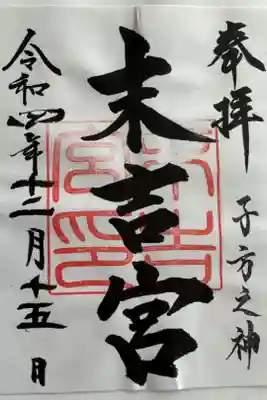 奉拝 子方之神
末吉宮
令和四年十二月十五日